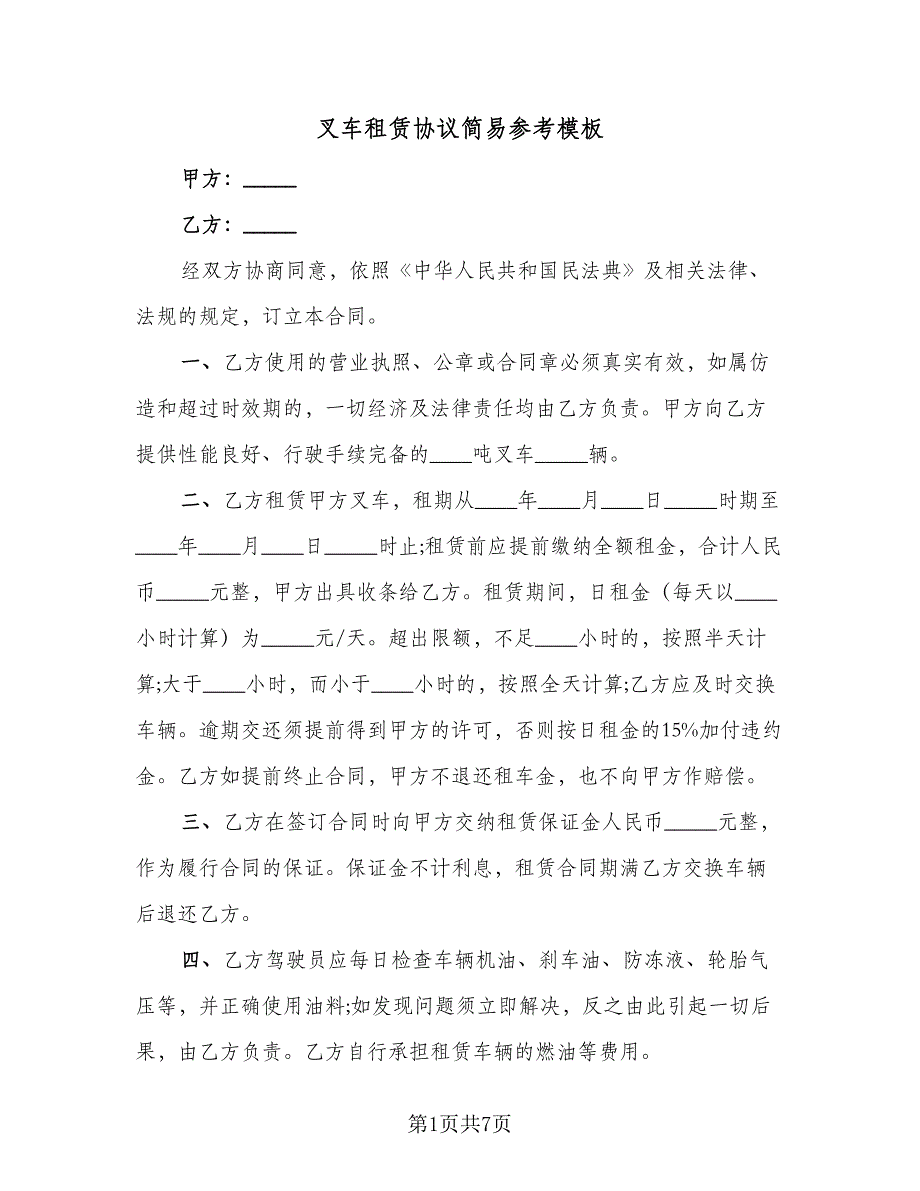 叉车租赁协议简易参考模板
甲方：_____
乙方：_____
经双方协商同意，依照《中华人民共和国民法典》及相关法律、
法规的规定，订立本合同。
一、乙方使用的营业执照、公章或合同章必须真实有效，如属仿
造和超过时效期的，一切经济及法律责任均由乙方负责。甲方向乙方
提供性能良好、行驶手续完备的____吨叉车_____辆。
二、乙方租赁甲方叉车，租期从____年____月____日_____时期至
____年____月____日_____时止;租赁前应提前缴纳全额租金，合计人民
币_____元整，甲方出具收条给乙方。租赁期间，日租金（每天以____
小时计算）为_____元/天。超出限额，不足____小时的，按照半天计
算;大于____小时，而小于____小时的，按照全天计算;乙方应及时交换
车辆。逾期交还须提前得到甲方的许可，否则按日租金的15%加付违约
金。乙方如提前终止合同，甲方不退还租车金，也不向甲方作赔偿。
三、乙方在签订合同时向甲方交纳租赁保证金人民币_____元整，
作为履行合同的保证。保证金不计利息，租赁合同期满乙方交换车辆
后退还乙方。
四、乙方驾驶员应每日检查车辆机油、刹车油、防冻液、轮胎气
压等，并正确使用油料;如发现问题须立即解决，反之由此引起一切后
果，由乙方负责。乙方自行承担租赁车辆的燃油等费用。
第1页共7页